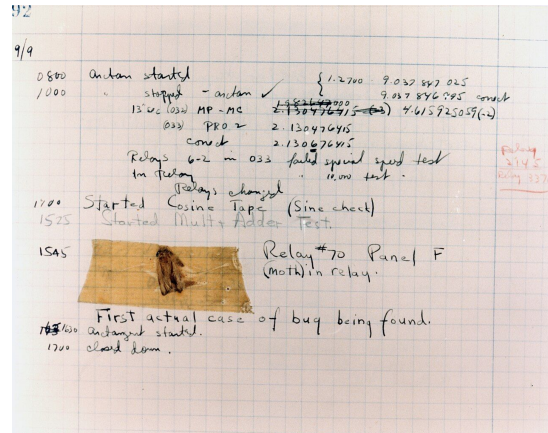 92
9/9
0800 antan started { 1.2700 9.037 847 025
1000 " stopped - antan ✓ 9.037 846 995 conect
13"uc (032) MP - MC 2.130476415 4.615925059(-2)
(033) PRO 2 2.130476415
conect 2.130676415
Relays 6-2 in 033 failed special speed test
In Relay " 10,000 test .
Relays changed
Started Cosine Tape (Sine check)
1525 Started Mult + Adder Test.
1545 Relay #70 Panel F
(moth) in relay.
First actual case of bug being found.
1630 antangent started.
1700 closed down.
Relay
3145
Relay 337